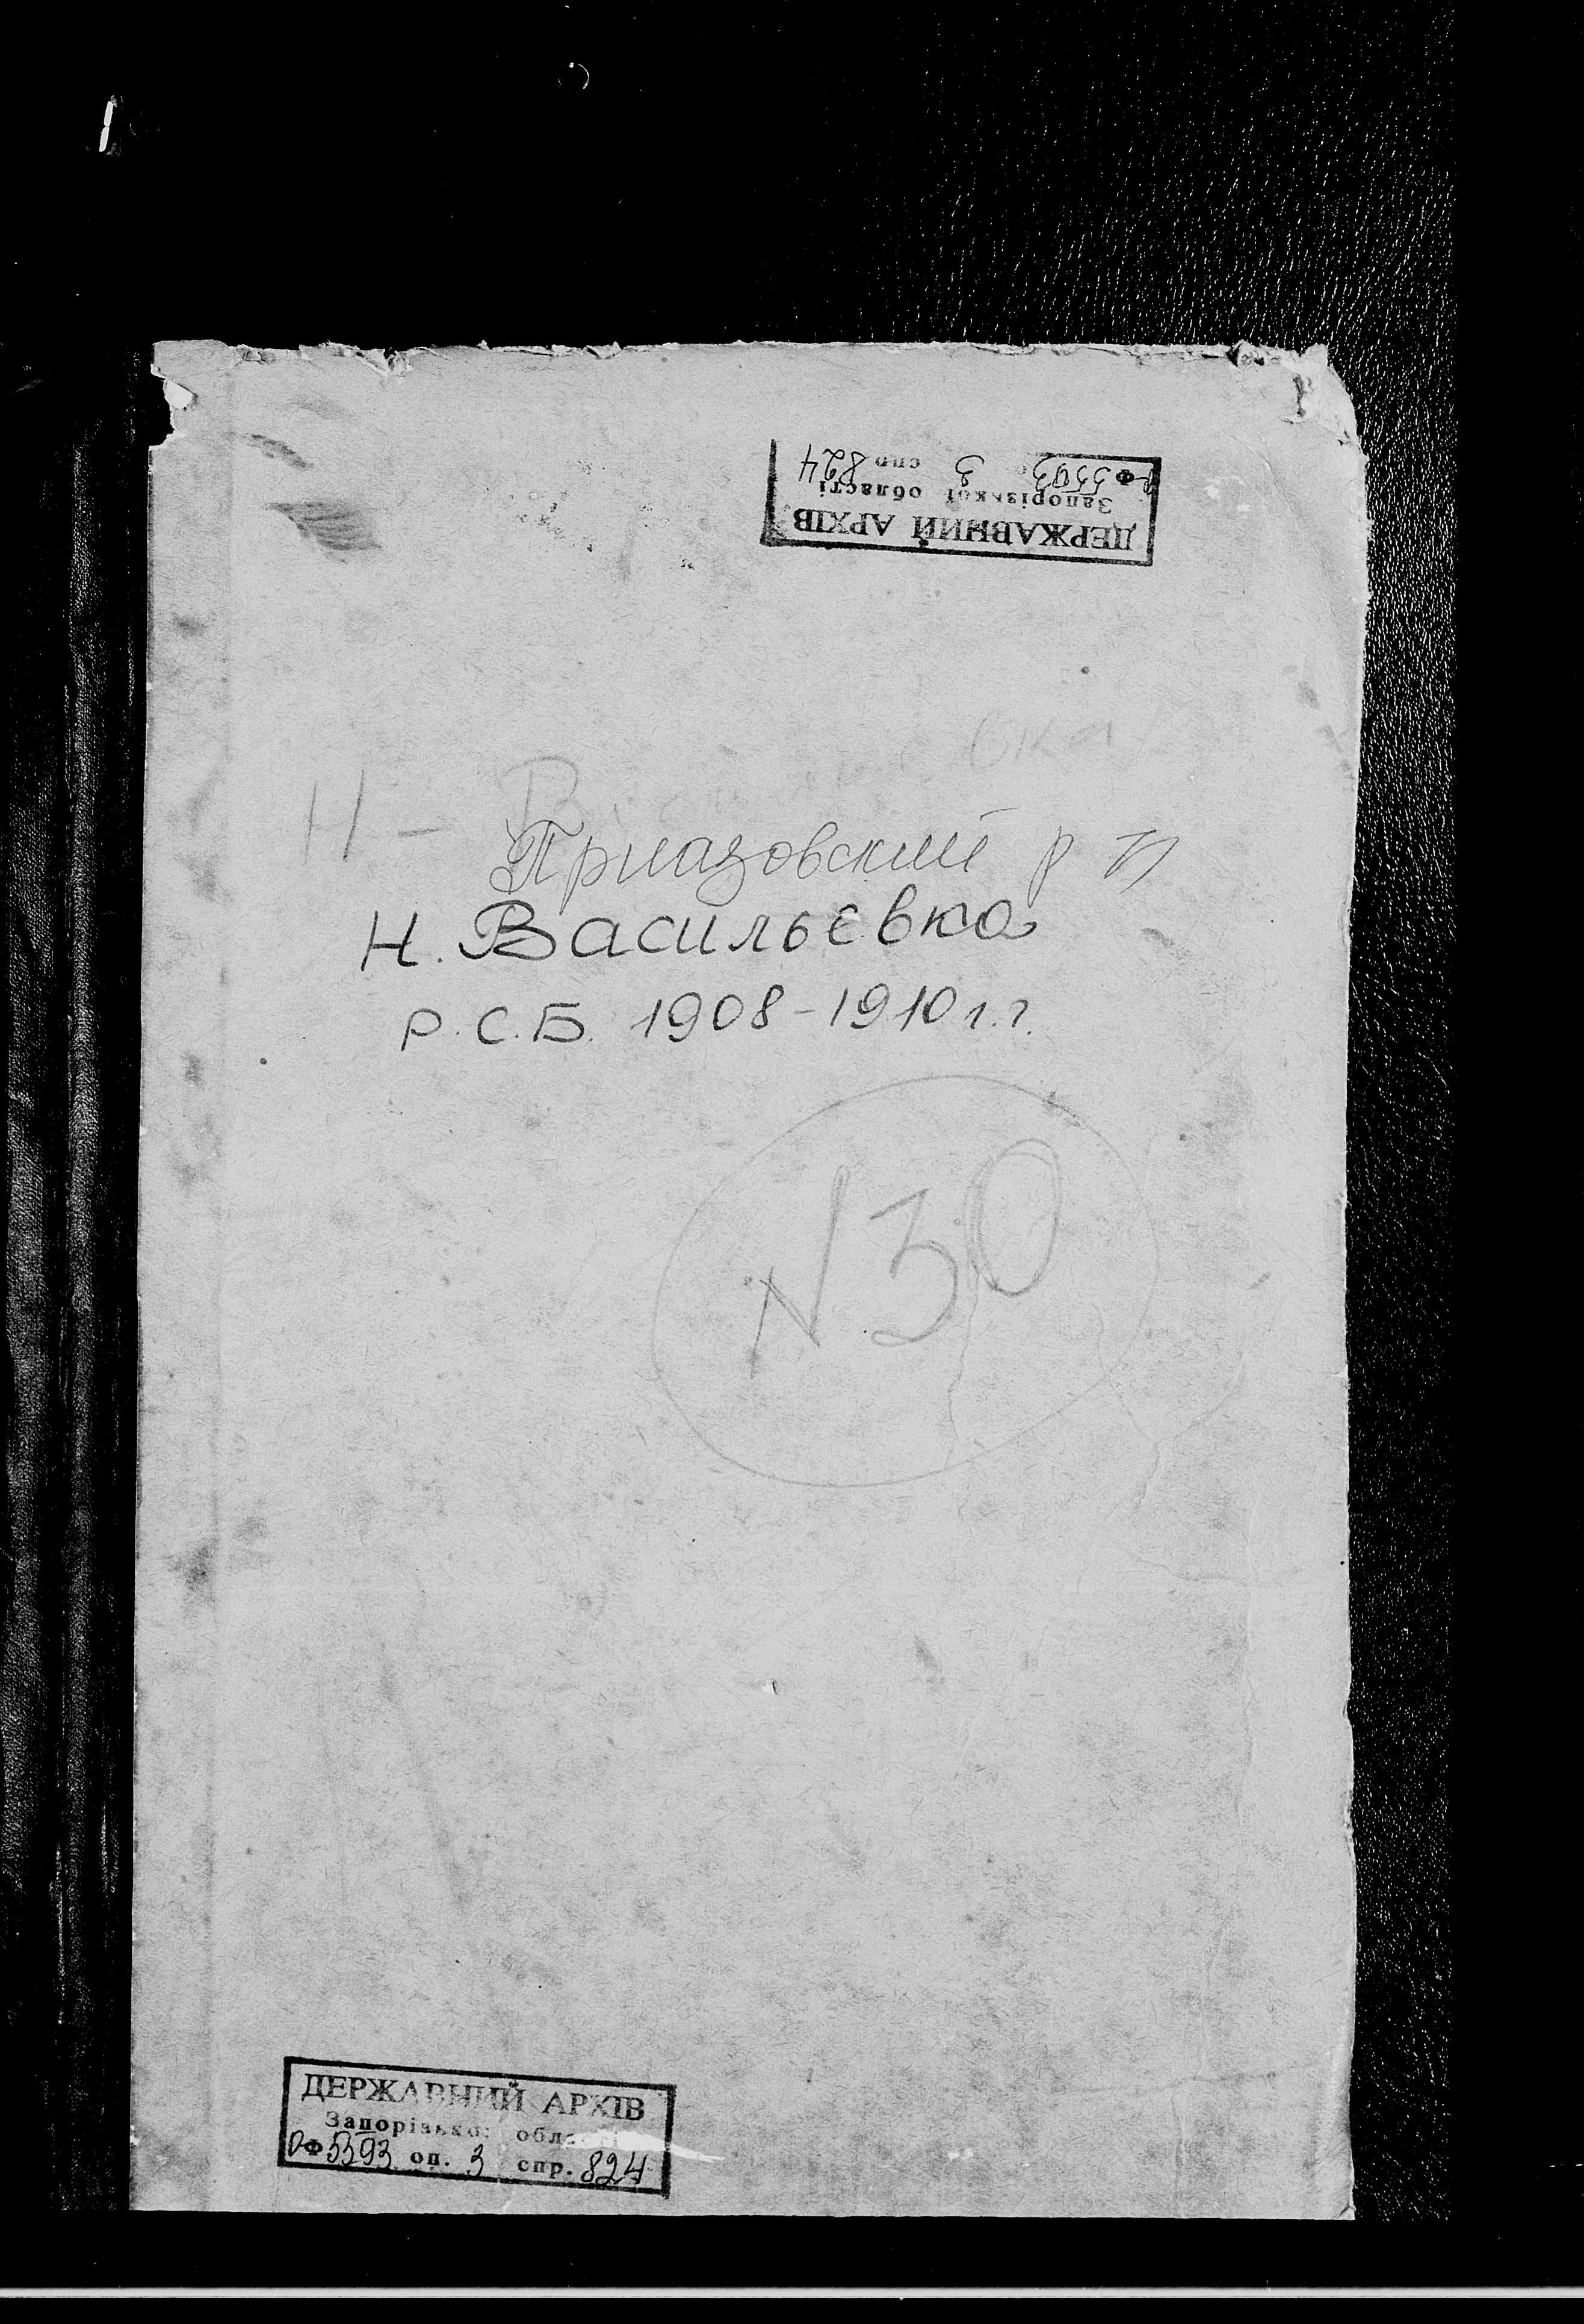 ДЕРЖАВНИЙ АРХІВ
Запорізької області
Р Ф 5593 3 спр 824
Н - Васильевка
Приазовский р-н
Н. Васильевка
Р. С. Б. 1908-1910 г.г.
N 30
ДЕРЖАВНИЙ АРХІВ
Запорізької області
Р Ф 5593 оп. 3 спр. 824